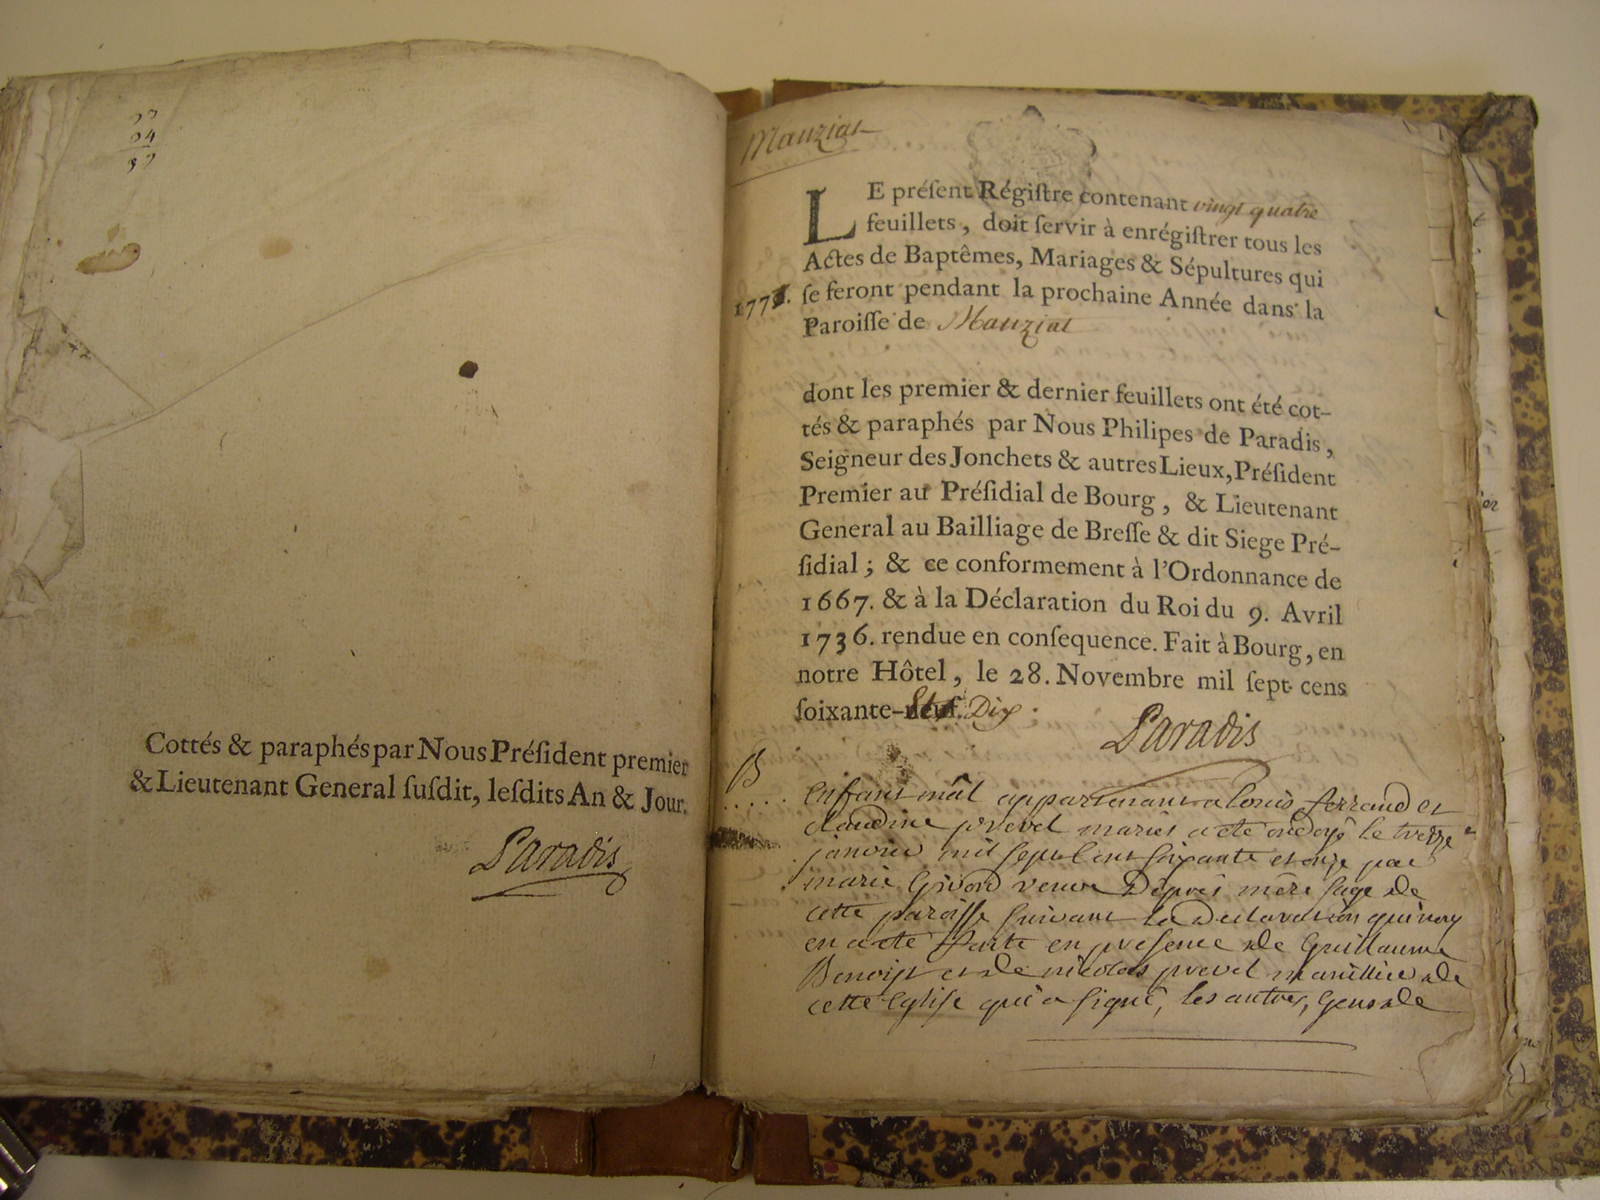 Cottés & paraphés par Nous Préſident premier
& Lieutenant General ſuſdit, leſdits An & Jour.
Paradis
Mauziat
LE préſent Régiſtre contenant vingt quatre
feuillets, doit ſervir à enrégiſtrer tous les
Actes de Baptêmes, Mariages & Sépultures qui
1771. ſe feront pendant la prochaine Année dans la
Paroiſſe de Mauziat
dont les premier & dernier feuillets ont été cot-
tés & paraphés par Nous Philipes de Paradis,
Seigneur des Jonchets & autres Lieux, Préſident
Premier au Préſidial de Bourg, & Lieutenant
General au Bailliage de Breſſe & dit Siege Pré-
ſidial; & ce conformement à l'Ordonnance de
1667. & à la Déclaration du Roi du 9. Avril
1736. rendue en conſequence. Fait à Bourg, en
notre Hôtel, le 28. Novembre mil ſept cens
ſoixante- Dix.
Paradis
B
enfant mâl appartenant a louis ferrand et
claudine prevel mariés a eté ondoyé le treize
janvier mil sept cent soixante et onze par
marie Givord veuve Dépres mére sage de
cette paroisse suivant la Declaration qui nous
en a eté faitte en presence de Guillaume
Benoist et de nicolas prevel marillier de
cette eglise qui a signé, les autres, gens de